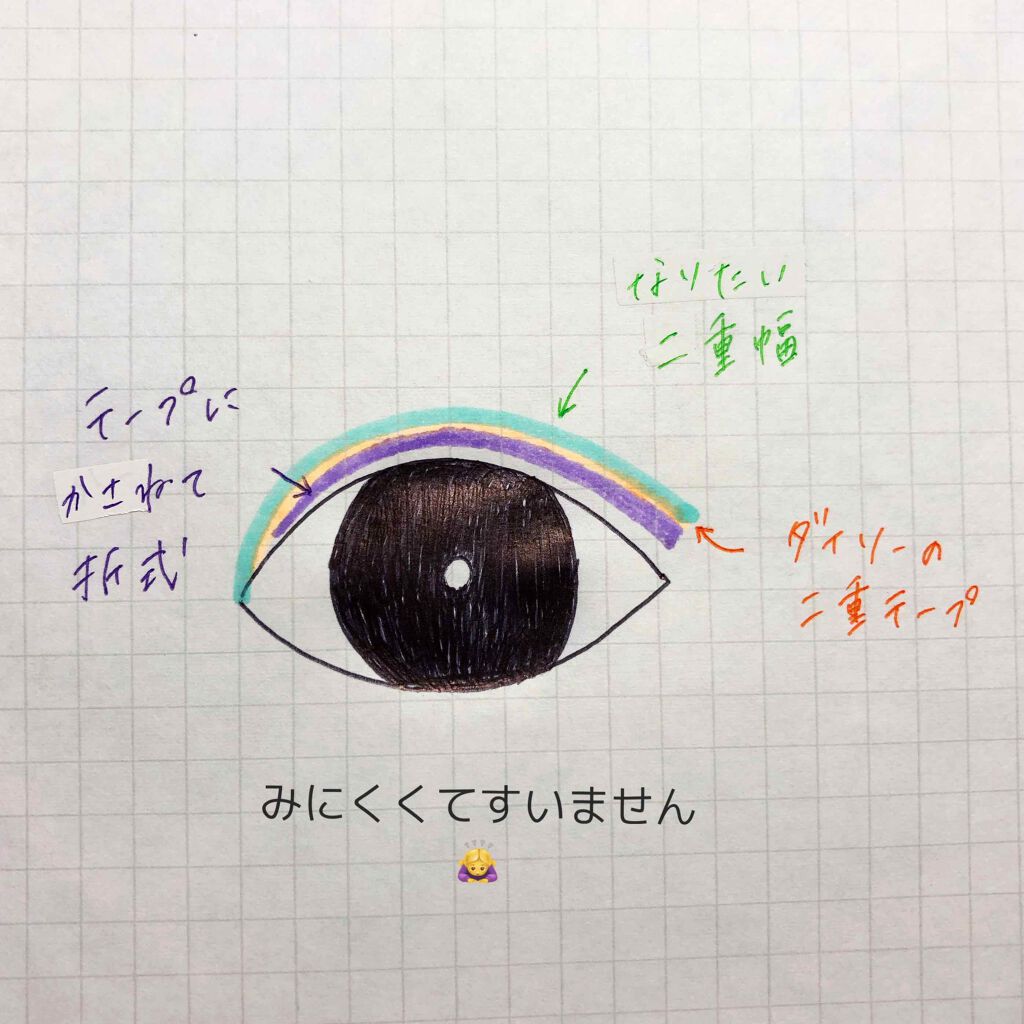 なりたい
二重幅
テープに
かさねて
折式
ダイソーの
二重テープ
みにくくてすいません